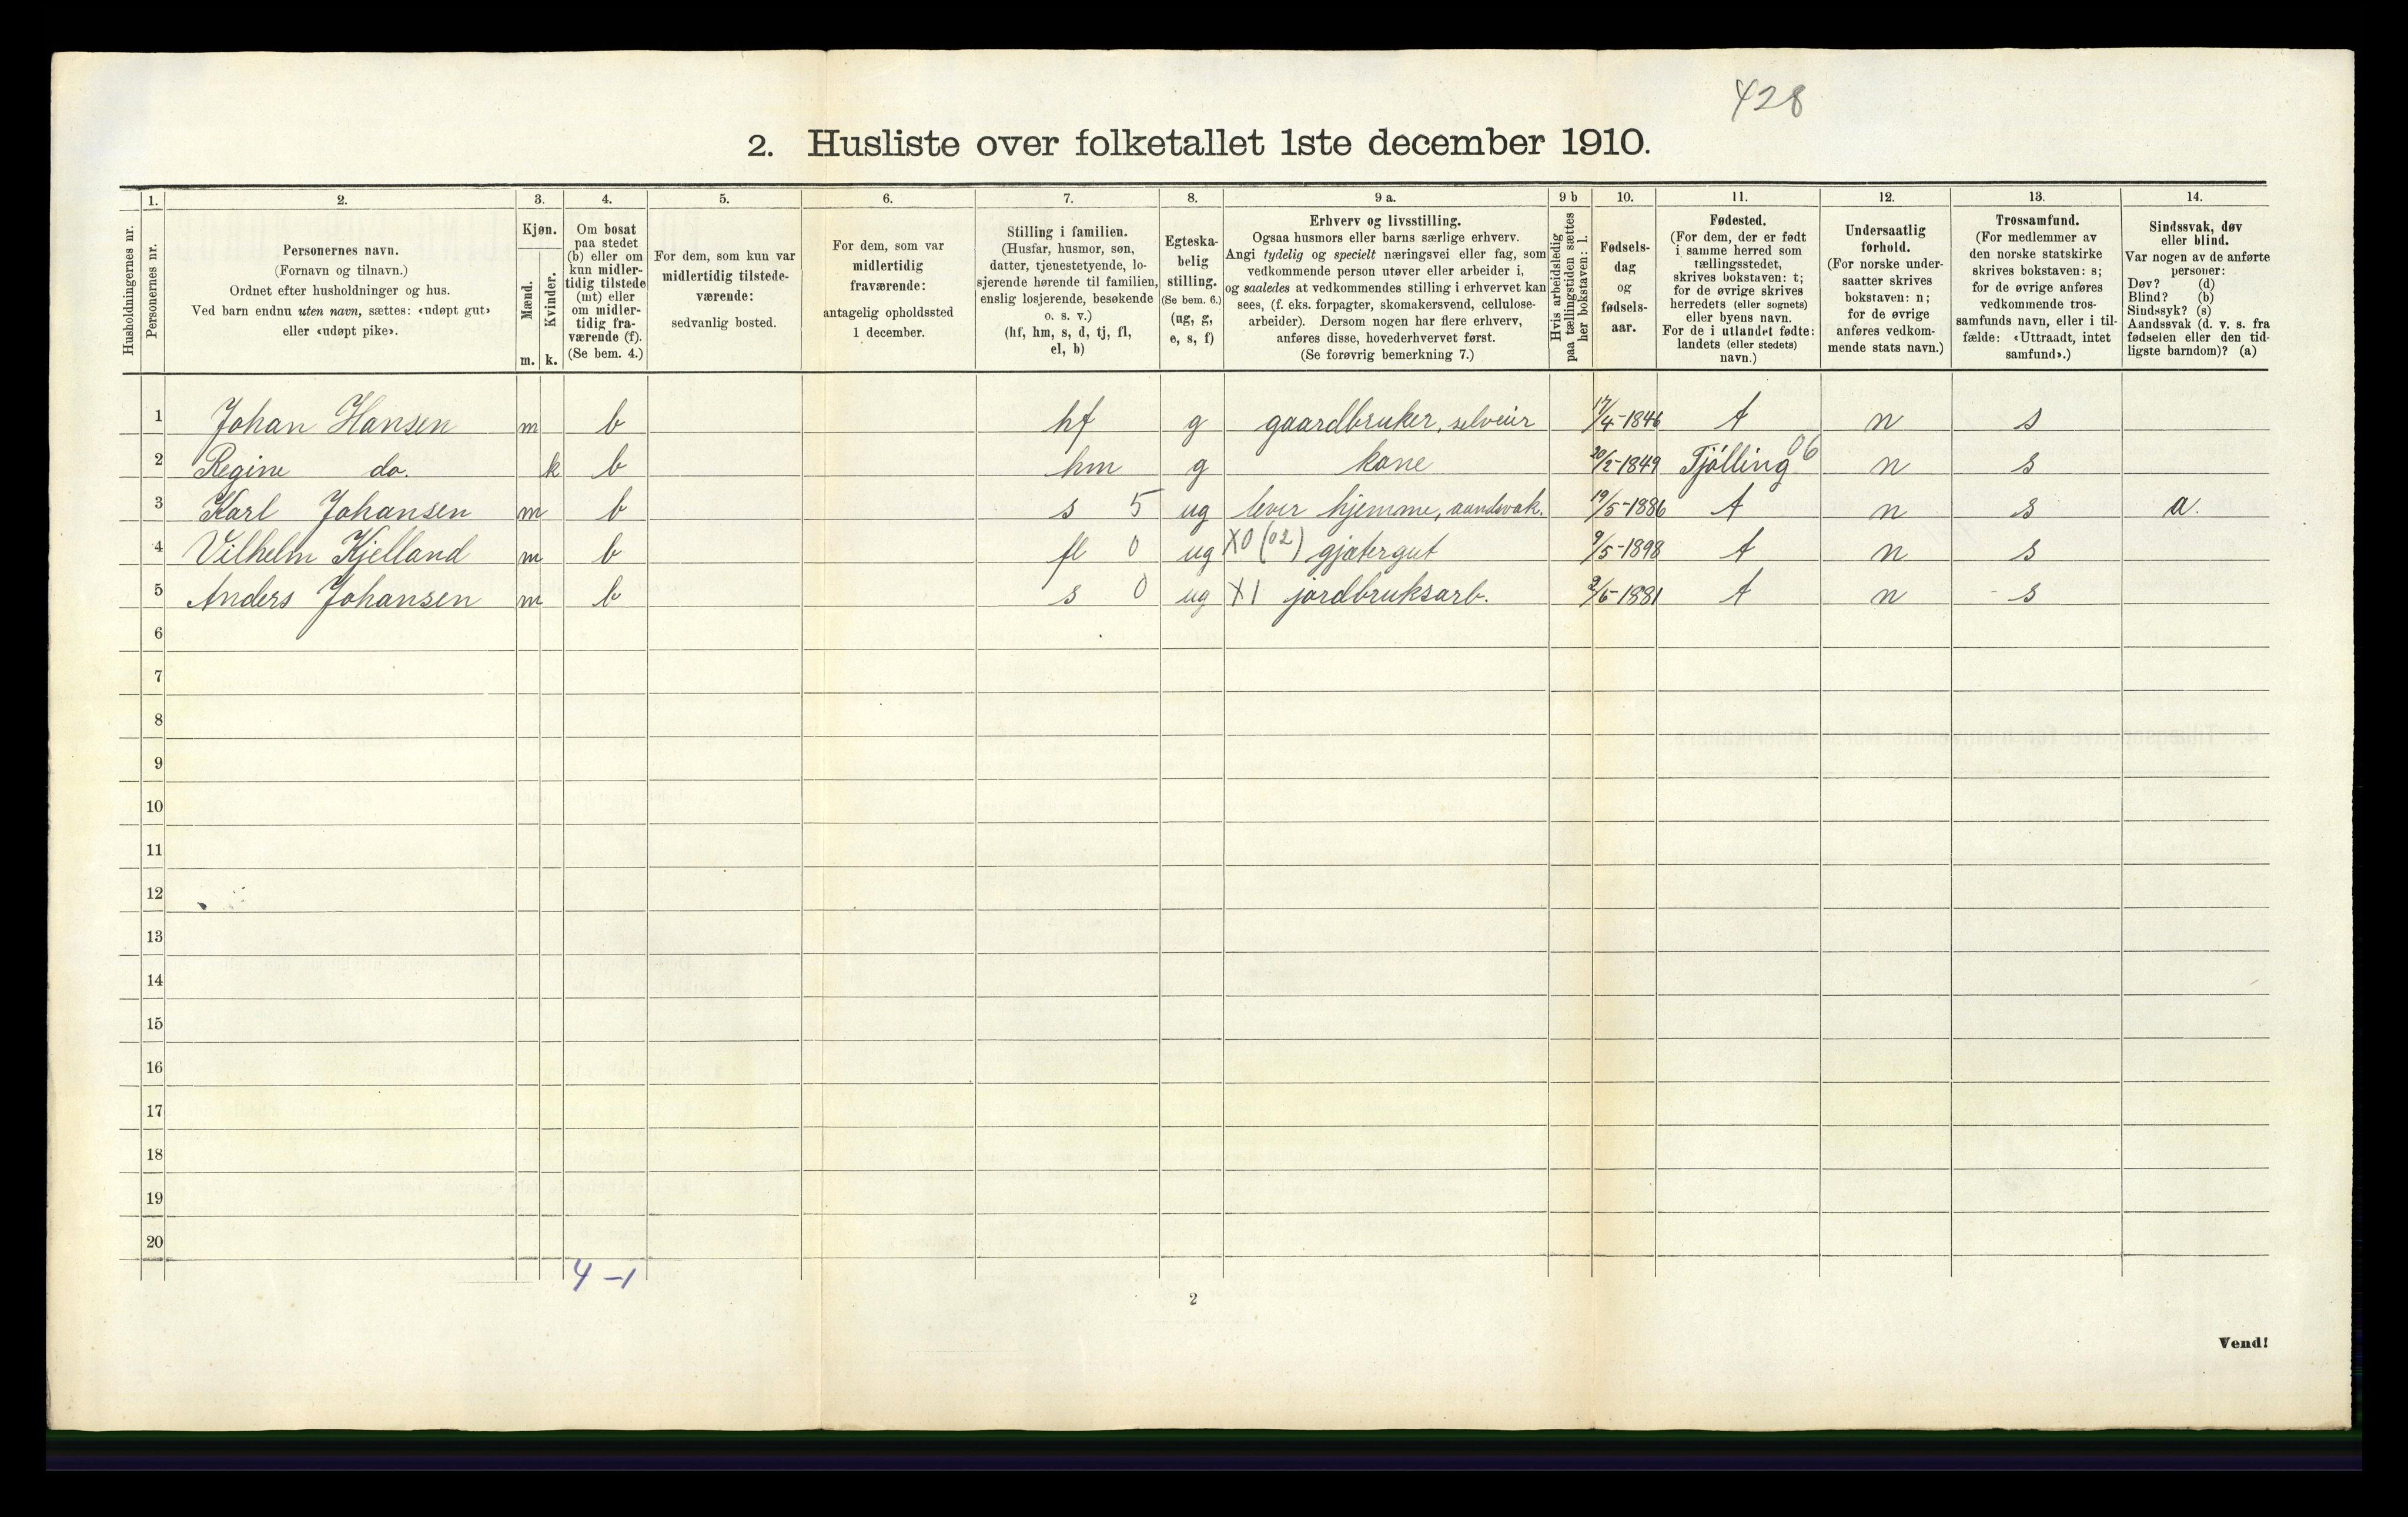 428
2. Husliste over folketallet 1ste december 1910.
Husholdningernes nr.
1.
Personernes nr.
2.
Personernes navn.
(Fornavn og tilnavn.)
Ordnet efter husholdninger og hus.
Ved barn endnu uten navn, sættes: «udøpt gut»
eller «udøpt pike».
3.
Kjøn.
Mænd.
Kvinder.
m. k.
4.
Om bosat
paa stedet
(b) eller om
kun midler-
tidig tilstede
(mt) eller
om midler-
tidig fra-
værende (f).
(Se bem. 4.)
5.
For dem, som kun var
midlertidig tilstede-
værende:
sedvanlig bosted.
6.
For dem, som var
midlertidig
fraværende:
antagelig opholdssted
1 december.
7.
Stilling i familien.
(Husfar, husmor, søn,
datter, tjenestetyende, lo-
sjerende hørende til familien,
enslig losjerende, besøkende
o. s. v.)
(hf, hm, s, d, tj, fl,
el, b)
8.
Egteska-
belig
stilling.
(Se bem. 6.)
(ug, g,
e, s, f)
9 a.
Erhverv og livsstilling.
Ogsaa husmors eller barns særlige erhverv.
Angi tydelig og specielt næringsvei eller fag, som
vedkommende person utøver eller arbeider i,
og saaledes at vedkommendes stilling i erhvervet kan
sees, (f. eks. forpagter, skomakersvend, cellulose-
arbeider). Dersom nogen har flere erhverv,
anføres disse, hovederhvervet først.
(Se forøvrig bemerkning 7.)
9 b
Hvis arbeidsledig
paa tællingstiden sættes
her bokstaven: l.
10.
Fødsels-
dag
og
fødsels-
aar.
11.
Fødested.
(For dem, der er født
i samme herred som
tællingsstedet,
skrives bokstaven: t;
for de øvrige skrives
herredets (eller sognets)
eller byens navn.
For de i utlandet fødte:
landets (eller stedets)
navn.)
12.
Undersaatlig
forhold.
(For norske under-
saatter skrives
bokstaven: n;
for de øvrige
anføres vedkom-
mende stats navn.)
13.
Trossamfund.
(For medlemmer av
den norske statskirke
skrives bokstaven: s;
for de øvrige anføres
vedkommende tros-
samfunds navn, eller i til-
fælde: «Uttraadt, intet
samfund».)
14.
Sindssvak, døv
eller blind.
Var nogen av de anførte
personer:
Døv? (d)
Blind? (b)
Sindssyk? (s)
Aandssvak (d. v. s. fra
fødselen eller den tid-
ligste barndom)? (a)
1 Johan Hansen m b hf g gaardbruker, selveier 17/4-1846 t n s
2 Regine do. k b hm g kone 20/2-1849 Tjølling 06 n s
3 Karl Johansen m b s 5 ug lever hjemme, aandsvak. 19/5-1886 t n s a.
4 Vilhelm Kjelland m b fl 0 ug X0 (02) gjætergut 9/5-1898 t n s
5 Anders Johansen m b s 0 ug X1 jordbruksarb. 2/6-1881 t n s
6
7
8
9
10
11
12
13
14
15
16
17
18
19
20
4-1
2
Vend!